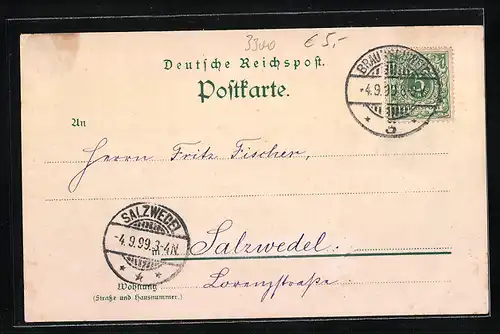 3300 € 5,-
Deutsche Reichspost.
Postkarte.
An
Herrn Fritz Fischer,
SALZWEDEL
-4.9.99.3-4N.
Salzwedel.
Wohnung
Lorenzstraße
(Straße und Hausnummer.)